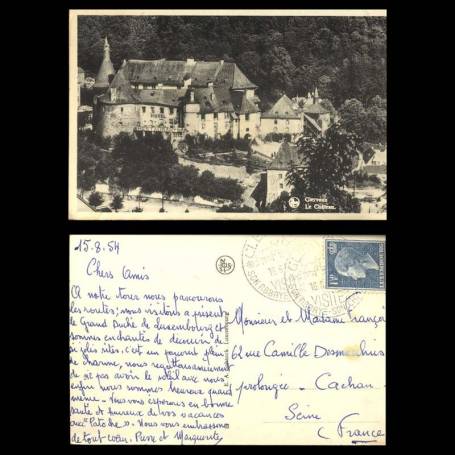 HOTEL
RESTAURANT
CLERVAUX
Le Château.
15.8.54
Chers Amis
A notre tour nous parcourons
les routes; nous visitons à présent
le Grand Duché de Luxembourg et
sommes enchantés de découvrir de
si jolis sites, c'est un pays plein
de charme, nous regrettons
de ne pas avoir le soleil avec nous
enfin nous sommes heureux quand
même. Nous vous espérons en bonne
santé et heureux de vos vacances
au "Patoche". Nous vous embrassons
de tout coeur. Pierre et Marguerite
VISITE
Monsieur et Madame François
62 rue Camille Desmoulins
prolongée - Cachan.
Seine
(France)